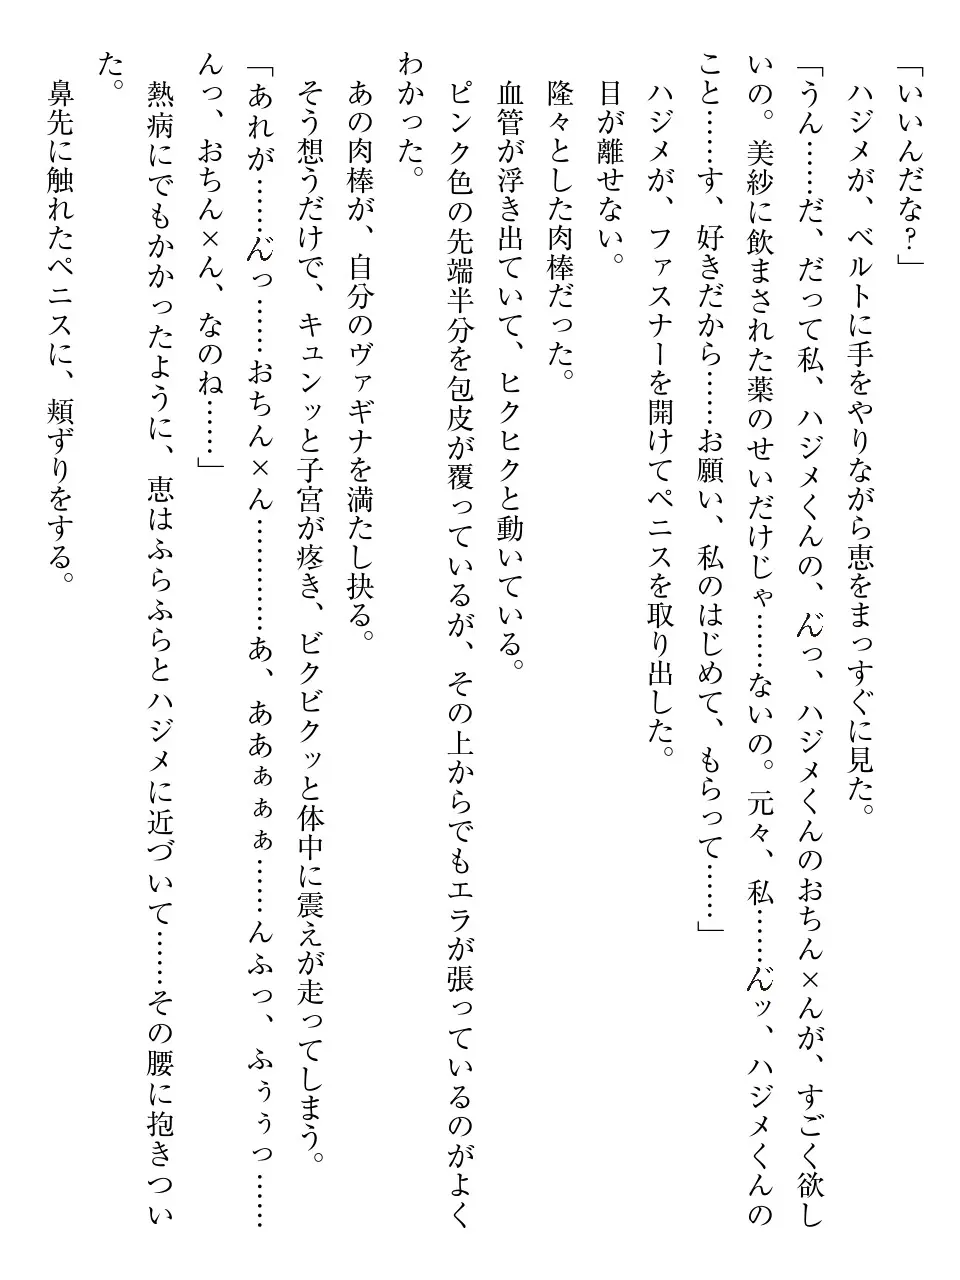 「いいんだな？」
ハジメが、ベルトに手をやりながら恵をまっすぐに見た。
「うん……だ、だって私、ハジメくんの、ん゛っ、ハジメくんのおちん×んが、すごく欲し
いの。美紗に飲まされた薬のせいだけじゃ……ないの。元々、私……ん゛ッ、ハジメくんの
こと……す、好きだから……お願い、私のはじめて、もらって……」
ハジメが、ファスナーを開けてペニスを取り出した。
目が離せない。
隆々とした肉棒だった。
血管が浮き出ていて、ヒクヒクと動いている。
ピンク色の先端半分を包皮が覆っているが、その上からでもエラが張っているのがよく
わかった。
あの肉棒が、自分のヴァギナを満たし抉る。
そう想うだけで、キュンッと子宮が疼き、ビクビクッと体中に震えが走ってしまう。
「あれが……ん゛っ……おちん×ん…………あ、あぁぁぁ……んふっ、ふぅぅっ……
んっ、おちん×ん、なのね……」
熱病にでもかかったように、恵はふらふらとハジメに近づいて……その腰に抱きつい
た。
鼻先に触れたペニスに、頬ずりをする。